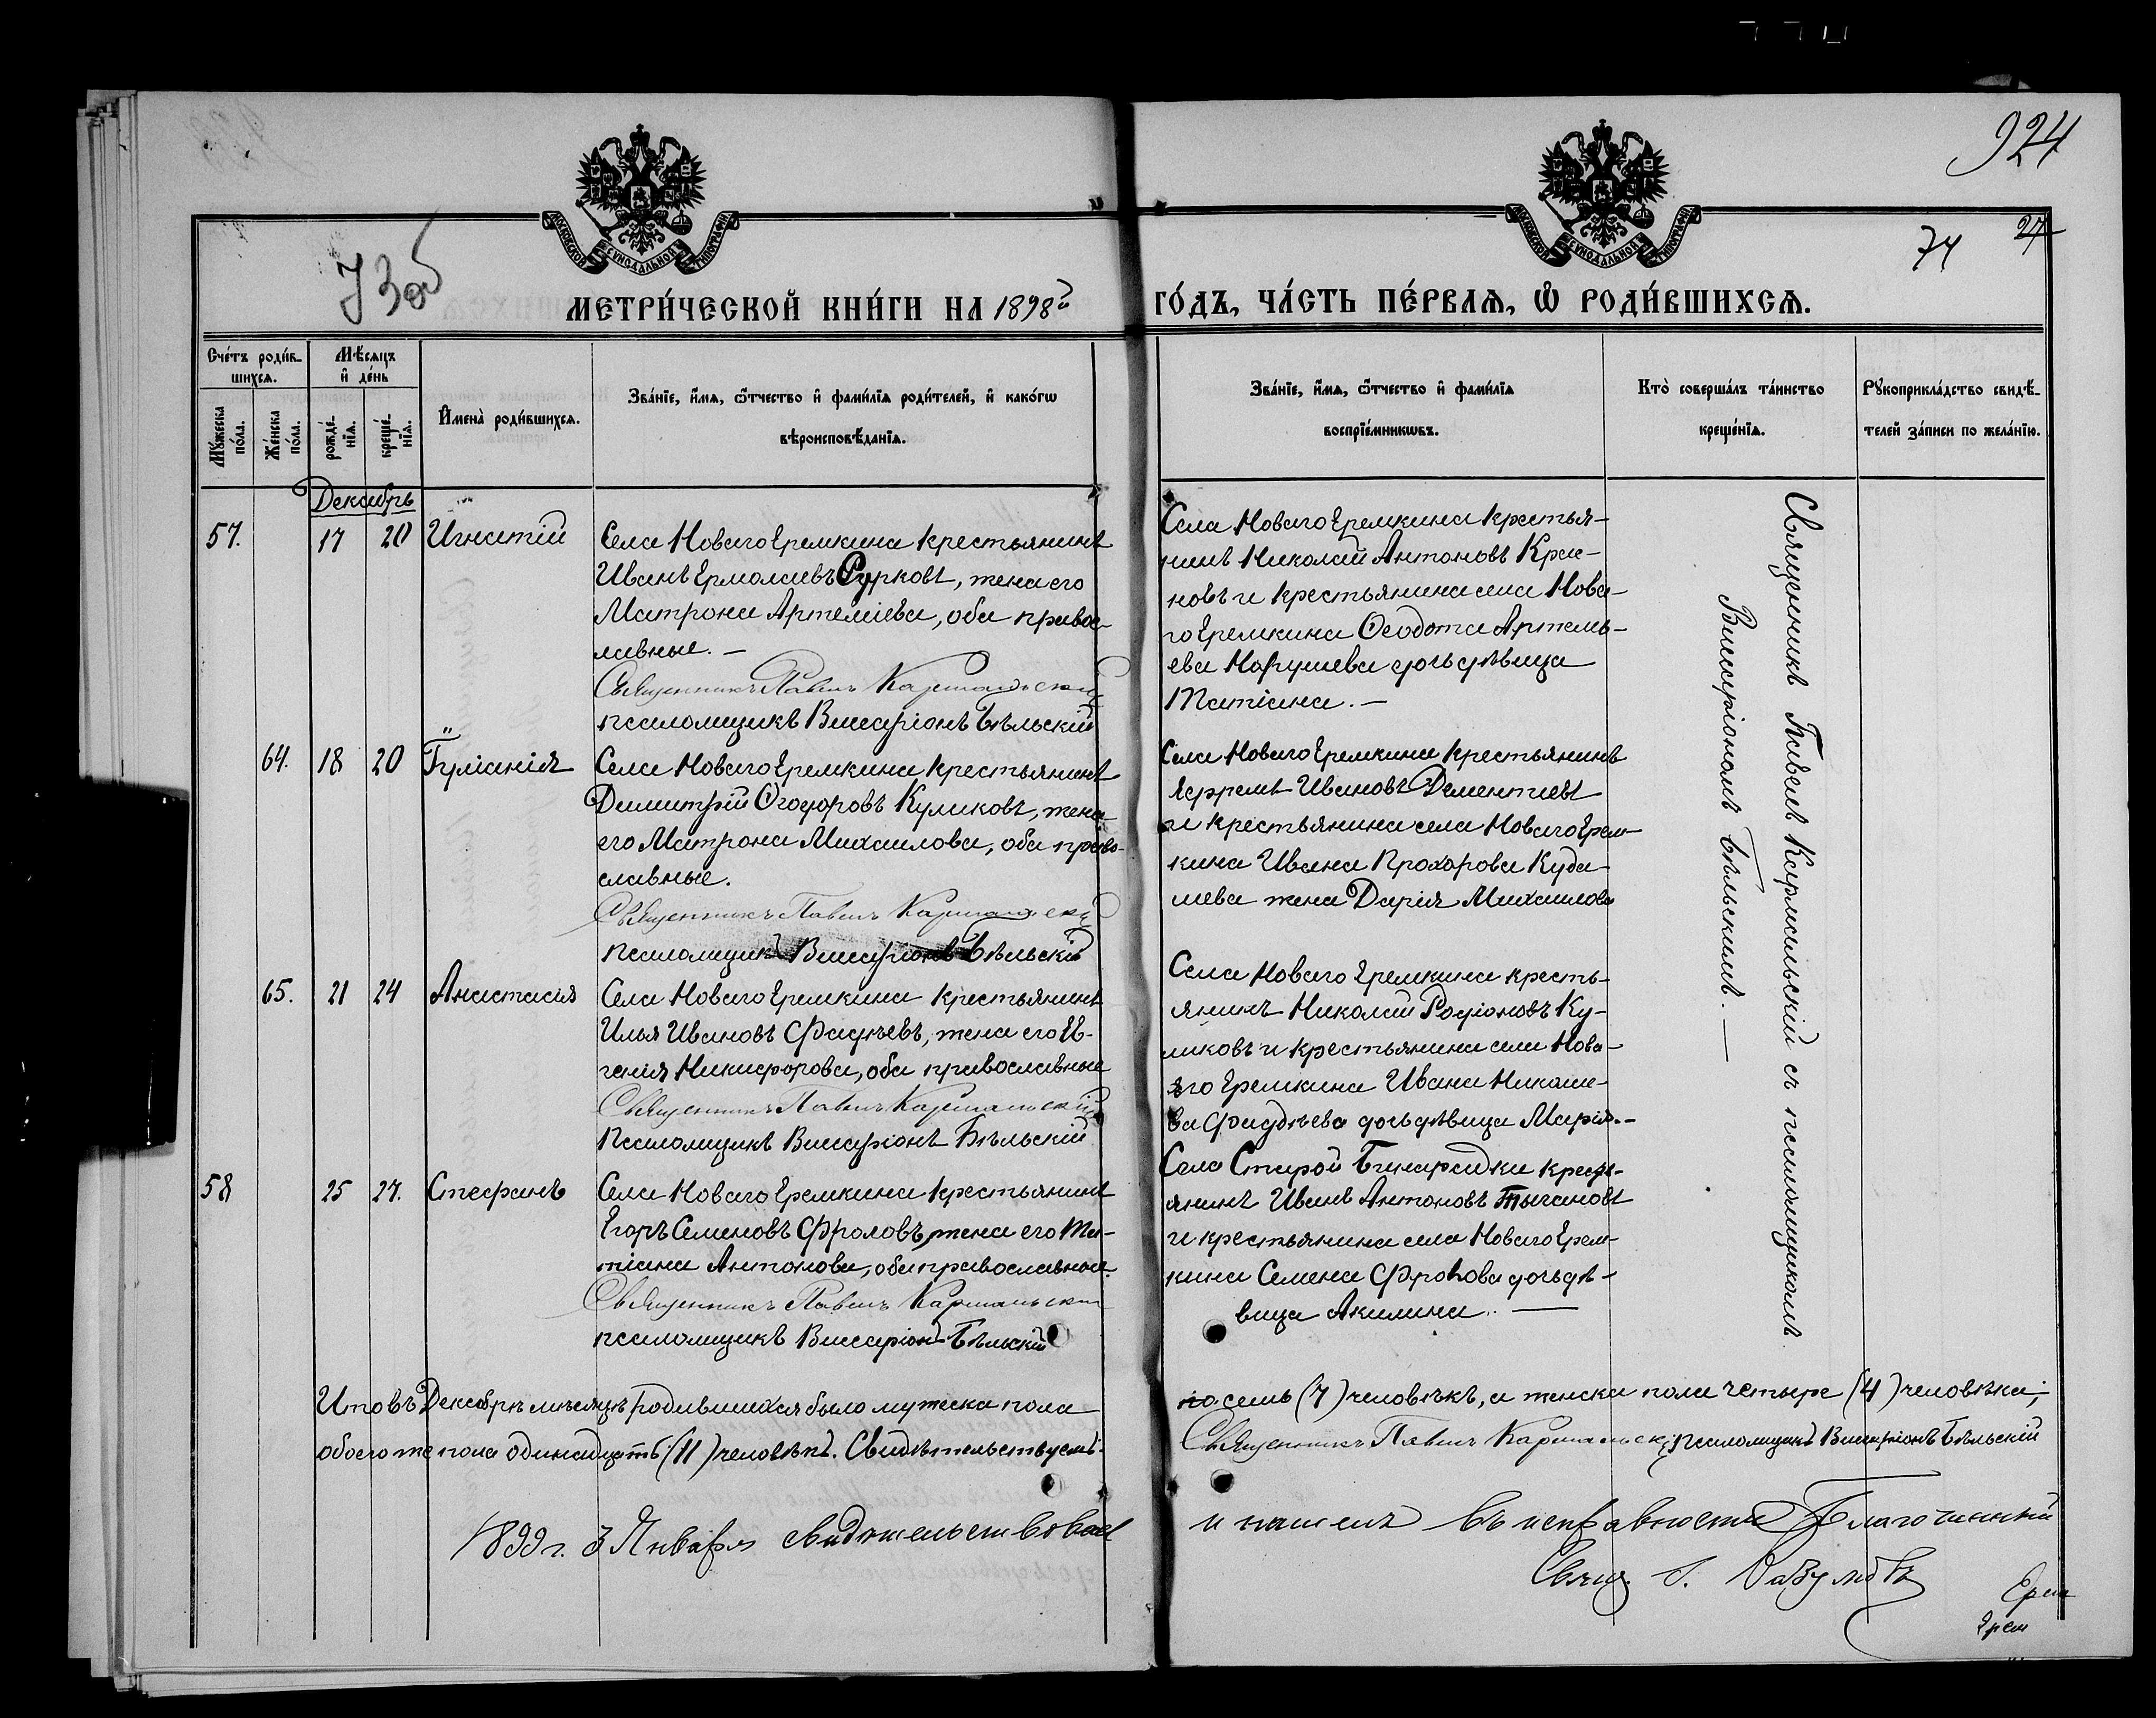 924
27
74
73об
МОСКОВСКОЙ СѴНОДАЛЬНОЙ ТИПОГРАФІИ
МОСКОВСКОЙ СѴНОДАЛЬНОЙ ТИПОГРАФІИ
МЕТРИ́ЧЕСКОЙ КНИ́ГИ НА 1898й
ГО́ДЪ, ЧА́СТЬ ПЕ́РВАѦ, Ѡ РОДИ́ВШИХСѦ.
Сче́тъ роди́в-
шихсѧ.
Мꙋ́жеска по́ла.
Же́нска по́ла.
Мѣ́сѧцъ
и҆ де́нь
рожде́-
нїѧ.
креще́-
нїѧ.
И҆мена̀ роди́вшихсѧ.
Зва́нїе, и҆́мѧ, ѻ҆́тчество и҆ фами́лїѧ роди́телей, и҆ како́гѡ
вѣроисповѣ́данїѧ.
Зва́нїе, и҆́мѧ, ѻ҆́тчество и҆ фами́лїѧ
воспрїе́мникѡвъ.
Кто̀ соверша́лъ та́инство
креще́нїѧ.
Рꙋкоприкла́дство свидѣ́-
телей за́писи по жела́нїю.
Декабрь
57. 17 20 Игнатій
Села Новаго Еремкина крестьянинъ
Иванъ Ермолаевъ Сурковъ, жена его
Матрона Артеміева, оба правос-
лавные. —
Священникъ Павелъ Кармальскій
псаломщикъ Виссаріонъ Бѣльскій
Села Новаго Еремкина крестья-
нинъ Николай Антоновъ Крас-
новъ и крестьянина села Нова-
го Еремкина Ѳеодота Артемь-
ева Марушева дочь дѣвица
Татіана. —
64. 18 20 Іуліанія
Села Новаго Еремкина крестьянинъ
Димитрій Ѳеодоровъ Куликовъ, жена
его Матрона Михаилова, оба право-
славные.
Священникъ Павелъ Кармальскій
псаломщикъ Виссаріонъ Бѣльскій
Села Новаго Еремкина крестьянинъ
Ефремъ Ивановъ Дементіевъ
и крестьянина села Новаго Ерем-
кина Ивана Прохорова Куда-
шева жена Дарія Михаилова
65. 21 24 Анастасія
Села Новаго Еремкина крестьянинъ
Илья Ивановъ Фадѣевъ, жена его Ев-
генія Никифорова, оба православные
Священникъ Павелъ Кармальскій
Псаломщикъ Виссаріонъ Бѣльскій
Села Новаго Еремкина кресть-
янинъ Николай Родіоновъ Ку-
ликовъ и крестьянина села Нова-
го Еремкина Ивана
Фадѣева дочь дѣвица Марія. —
58 25 27. Стефанъ
Села Новаго Еремкина крестьянинъ
Егоръ Семеновъ Фроловъ, жена его Та-
тіана Антонова, оба православные
Священникъ Павелъ Кармальскій
псаломщикъ Виссаріонъ Бѣльскій
Села Старой Бинарадки крест-
янинъ Иванъ Антоновъ
и крестьянина села Новаго Ерем-
кина Семена Фролова дочь дѣ-
вица Акилина. —
Священникъ Павелъ Кармальскій съ псаломщикомъ
Виссаріономъ Бѣльскимъ. —
Итого въ Декабрѣ мѣсяцѣ родившихся было мужеска пола
семь (7) человѣкъ, а женска пола четыре (4) человѣка;
обоего же пола одинадцать (11) человѣкъ. Свидѣтельствуемъ:
Священникъ Павелъ Кармальскій псаломщикъ Виссаріонъ Бѣльскій
1899 г. 3 Января свидѣтельствовалъ
и нашелъ въ исправности Благочинный
Свящ.
Ерем
Ерем